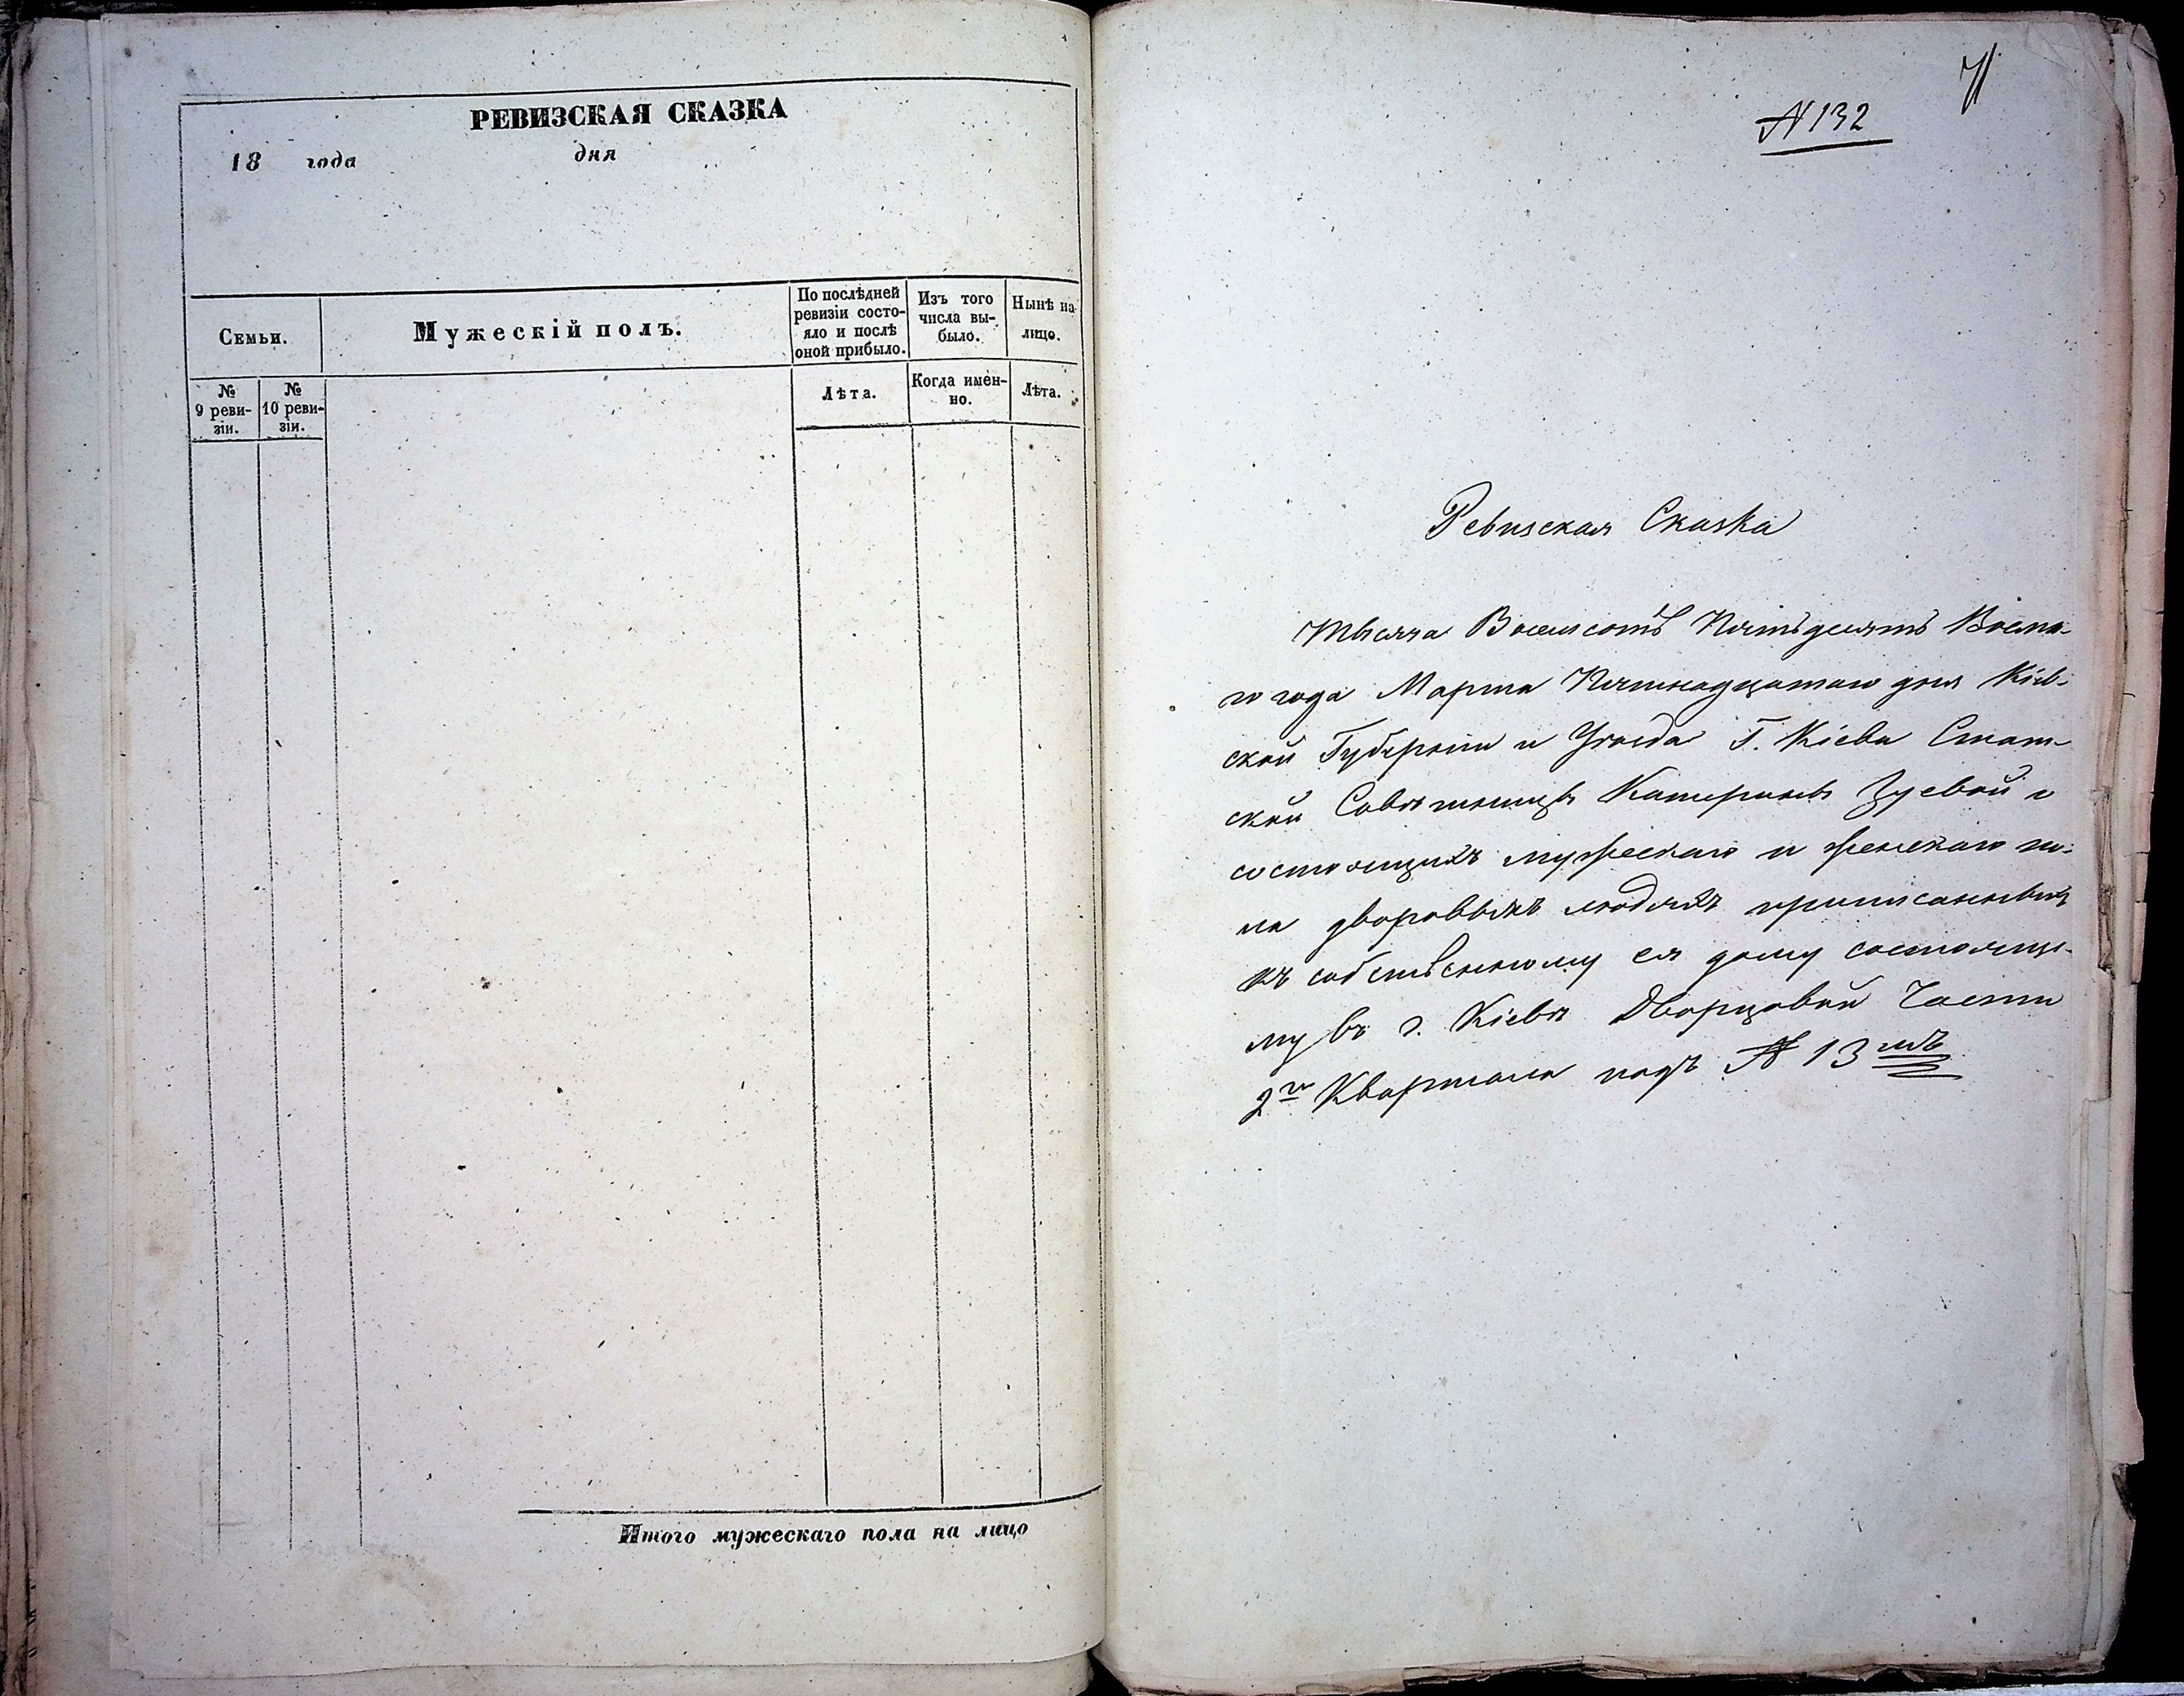 РЕВИЗСКАЯ СКАЗКА
18 года дня
Семьи.
Мужескій полъ.
По послѣдней
ревизіи состо-
яло и послѣ
оной прибыло.
Изъ того
числа вы-
было.
Нынѣ на
лицо.
№
9 реви-
зіи.
№
10 реви-
зіи.
Лѣта.
Когда имен-
но.
Лѣта.
Итого мужескаго пола на лицо
№ 132
Ревизская Сказка
Тысяча Восемсотъ Пятьдесятъ Восма-
го года Марта Пятнадцатаго дня Кіев-
ской Губерніи и Уѣзда Г. Кіева Стат-
ской Совѣтницы Катерины Зуевой о
состоящихъ мужескаго и женскаго по-
ла дворовыхъ людяхъ приписанныхъ
къ собственному ея дому состояще-
му въ г. Кіевѣ Дворцовой Части
2го Квартала подъ № 13мъ